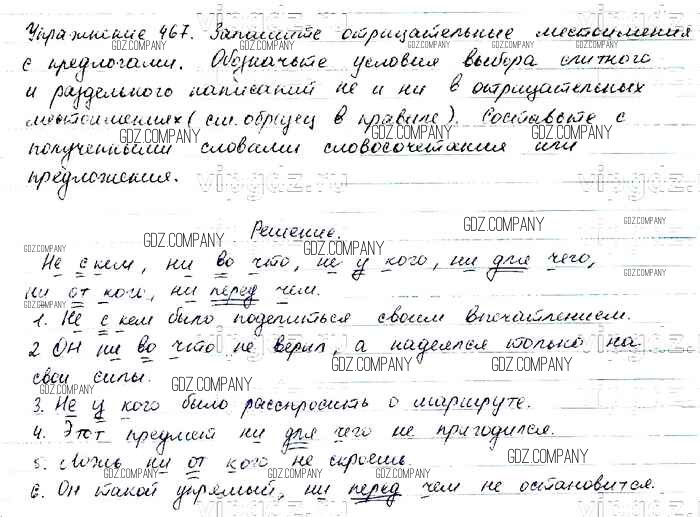 Упражнение 467. Запишите отрицательные местоимения
с предлогами. Обозначьте условия выбора слитного
и раздельного написаний не и ни в отрицательных
местоимениях (см. образец в правиле). Составьте с
полученными словами словосочетания или
предложения.
Решение.
Не с кем, ни во что, не у кого, ни для чего,
ни от кого, ни перед чем.
1. Не с кем было поделиться своим впечатлением.
2 Он ни во что не верил, а надеялся только на
свои силы.
3. Не у кого было расспросить о маршруте.
4. Этот предмет ни для чего не пригодился.
5. Ложь ни от кого не скроешь.
6. Он такой упрямый, ни перед чем не остановится.